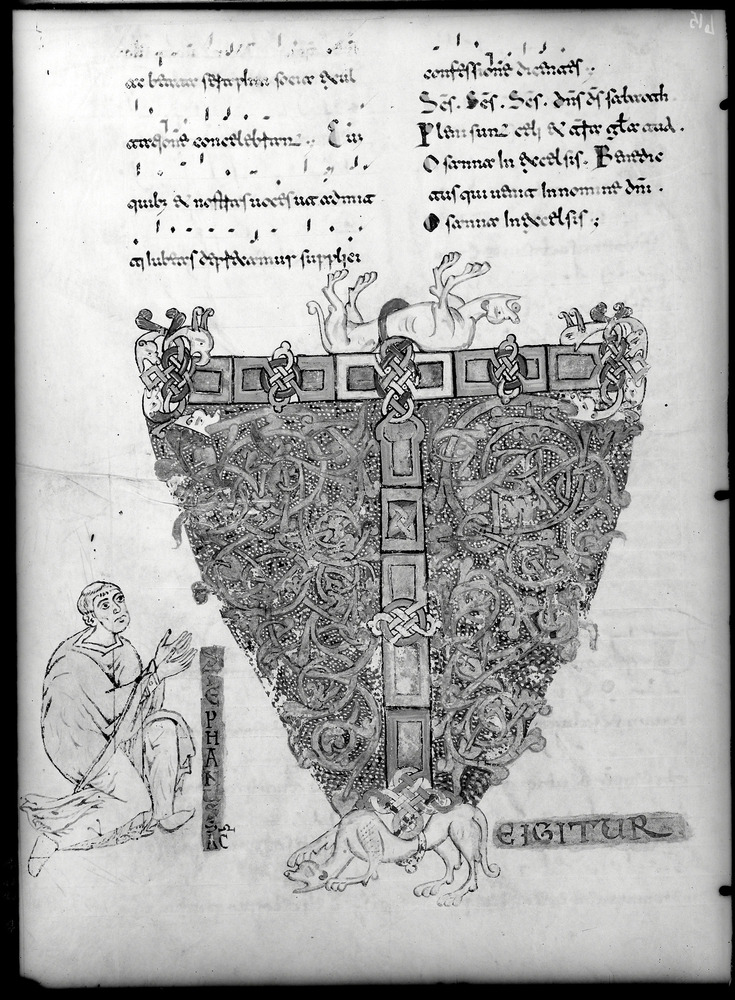 ac beata seraphin socia exul
tatione concelebrant. Cu
quib; & nostras uoces ut admit
ti iubeas deprecamur supplici
confessione dicentes;
Scs. Scs. Scs. dns ds sabaoth.
Pleni sunt celi & terra gla tua.
Osanna in excelsis. Benedic
tus qui uenit in nomine dni.
Osanna in excelsis;
EIGITUR